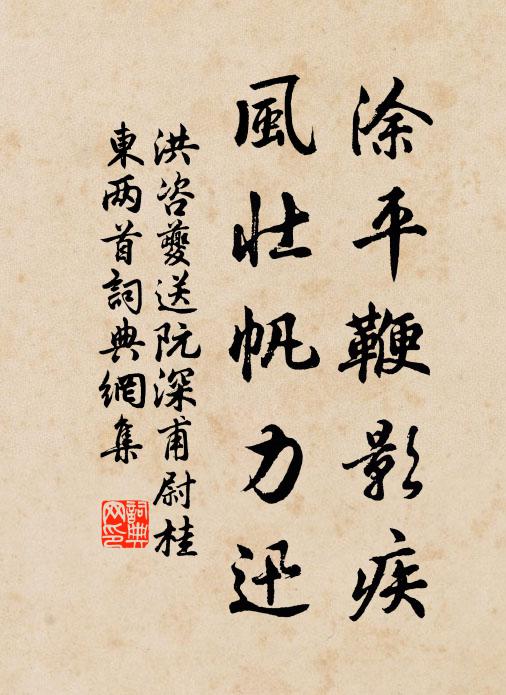 涂平鞭影疾
風壮帆力迅
洪咨夔送阮深甫尉桂
東两首詞典網集
詞典
网印